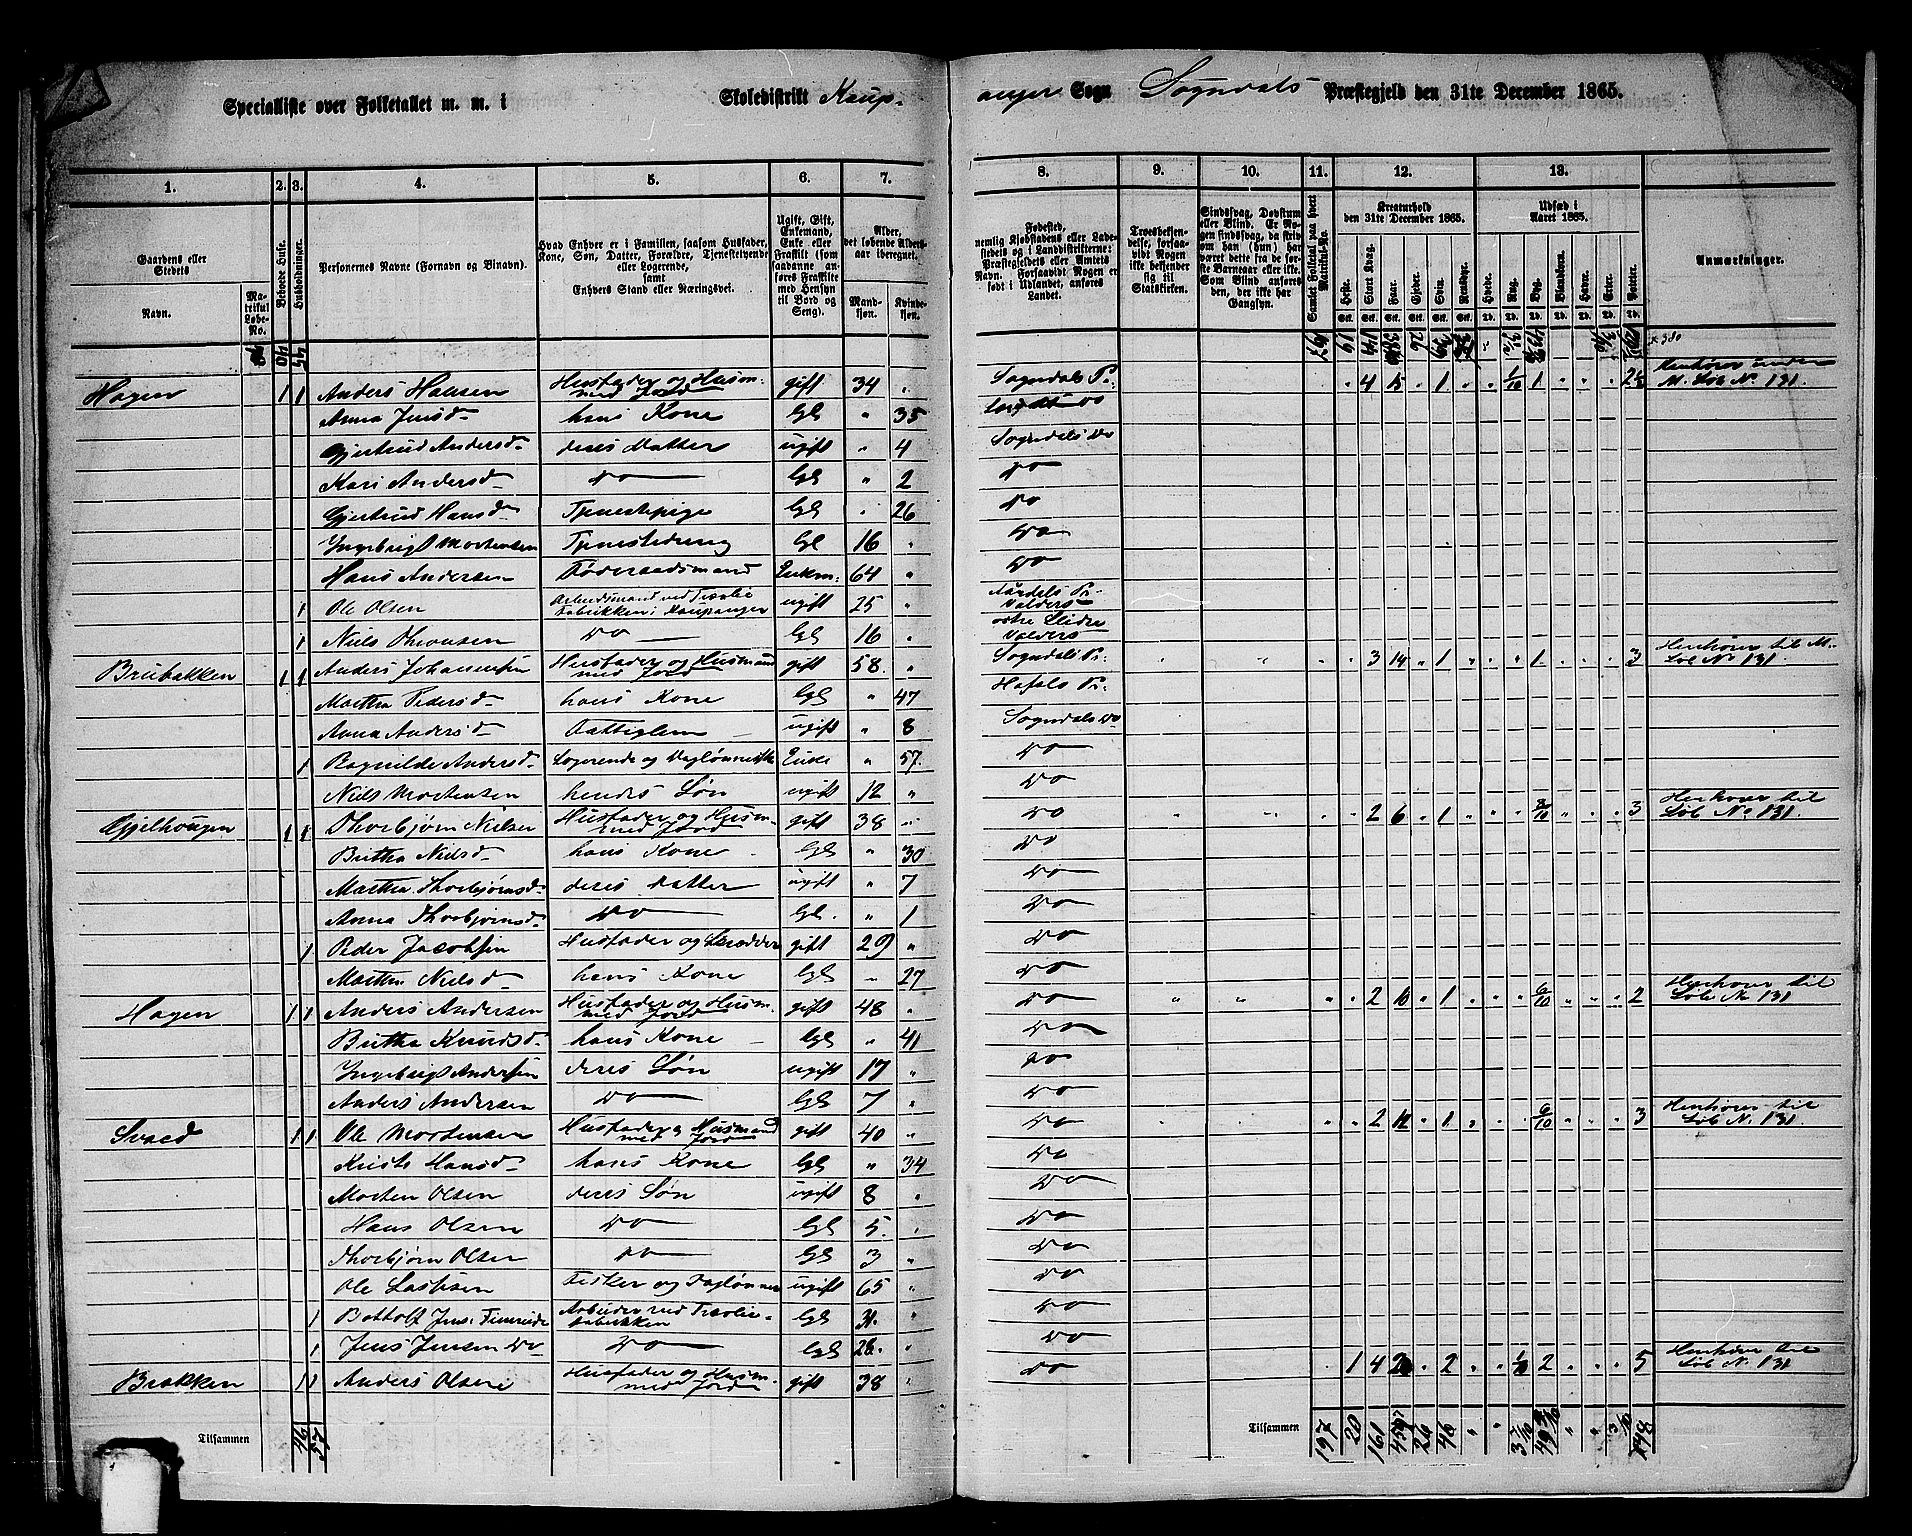 Specialliste over Folketallet m. m. i Skoledistrikt Kaup- anger Sogn Sogndals Præstegjeld den 31te December 1865.
1. 2. 3. 4. 5. 6. 7. 8. 9. 10. 11. 12. 13.
Gaardens eller Stedets
Navn.
Matrikul Løbe-No.
Beboede Huse.
Husholdninger.
Personernes Navne (Fornavn og Binavn).
Hvad Enhver er i Familien, saasom Husfader, Kone, Søn, Datter, Forældre, Tjenestetyende eller Logerende, samt Enhvers Stand eller Næringsvei.
Ugift, Gift, Enkemand, Enke eller Fraskilt (som saadanne anføres Fraskilte med Hensyn til Bord og Seng).
Alder, det løbende Alders-aar iberegnet.
Mandkjøn. Kvindekjøn.
Fødested, nemlig Kjøbstadens eller Ladestedets og i Landdistrikterne: Præstegjeldets eller Amtets Navn. Forsaavidt Nogen er født i Udlandet, anføres Landet.
Troesbekjendelse, forsaavidt Nogen ikke bekjender sig til Statskirken.
Sindssvag, Døvstum eller Blind. Er Nogen sindssvag, da skrives om han (hun) har været dette fra de første Barneaar eller ikke. Som Blind anføres den, der ikke har Gangsyn.
Samlet Folketal paa hvert Matrikul-No.
Kreaturhold den 31te December 1865.
Heste. Stort Kvæg. Faar. Gjeder. Svin. Rensdyr.
Udsæd i Aaret 1865.
Hvede. Rug. Byg. Blandkorn. Havre. Erter. Poteter.
Anmærkninger.
Hagen 1 1 Anders Hansen Husfader og Husm. med Jord gift 34 " Sogndals Pr. " 4 15 " 1 " " 1/10 1 " " " 2½ Henhører under M. Løb No 131.
Anna Jensd. hans Kone Gl " 35
Gjertrud Andersd. deres Datter ugift " 4 Sogndals do
Kari Andersd. do Gl " 2 do
Gjertrud Hansd. Tjenestepige Gl " 26 do
Ingebrigt Mortensen Tjenestedreng Gl 16 " do
Hans Andersen Føderaadsmand Enkm. 64 " do
1 Ole Olsen Arbeidsmand ved Træolie Fabrikken i Kaupanger ugift 25 " Aardals Pr. Valders
1 Niels Thronsen do Gl 16 " østre Slidre Valders
Brubakken 1 1 Anders Johannesen Husfader og Husmand med Jord gift 58 " Sogndals Pr. " " " " 3 14 " 1 " " " 1 " " " 3 Henhører til M. Løb No 131.
Martha Pedersd. hans Kone Gl " 47 Hafslo Pr.
Anna Andersd. Fattiglem ugift " 8 Sogndals do
1 Ragnilde Andersd. Logerende og Daglønnerske Enke " 57 do
Niels Mortensen hendes Søn ugift 12 " do
Gjelhougen 1 1 Thorbjørn Nielsen Husfader og Husm. med Jord gift 38 " do " " " " 2 6 " 1 " " " 8/10 " " " 3 Henhører til Løb No 131.
Britha Nielsd. hans Kone Gl " 30 do
Martha Thorbjørnsd. deres Datter ugift " 7 do
Anna Thorbjørnsd. do Gl. " 1 do
1 Peder Jacobsen Husfader og Skrædder gift 29 " do
Martha Nielsd. hans Kone Gl " 27 do
Hagen 1 1 Anders Andersen Husfader og Husm. med Jord gift 48 " do " " " " 2 10 " 1 " " " 6/10 " " " 2 Henhører til Løb No 131
Britha Knudsd. hans Kone Gl " 41 do
Ingebrigt Andersen deres Søn ugift 17 " do
Anders Andersen do Gl 7 " do
Svaed 1 1 Ole Mortensen Husfader og Husmand med Jord gift 40 " do " " " " 2 12 " 1 " " " 6/10 " " " 3 Henhører til Løb No 131.
Kristi Hansd. hans Kone Gl " 34 do
Morten Olsen deres Søn ugift 8 " do
Hans Olsen do Gl 5 " do
Thorbjørn Olsen do Gl 3 " do
Ole Lassesen Fisker og Daglønner ugift 65 " do
1 Botholf Jens. Fimreide Arbeider ved Træolie-fabrikken Gl 31 " do
1 Jens Jensen do do Gl 28 " do
Brækken 1 1 Anders Olsen Husfader og Husm. med Jord gift 38 do " 1 4 " 2 " " 1/10 2 " " " 5 Henhører til Løb No 131
Tilsammen 46 57 Tilsammen 197 20 161 26 46 " " " " 148